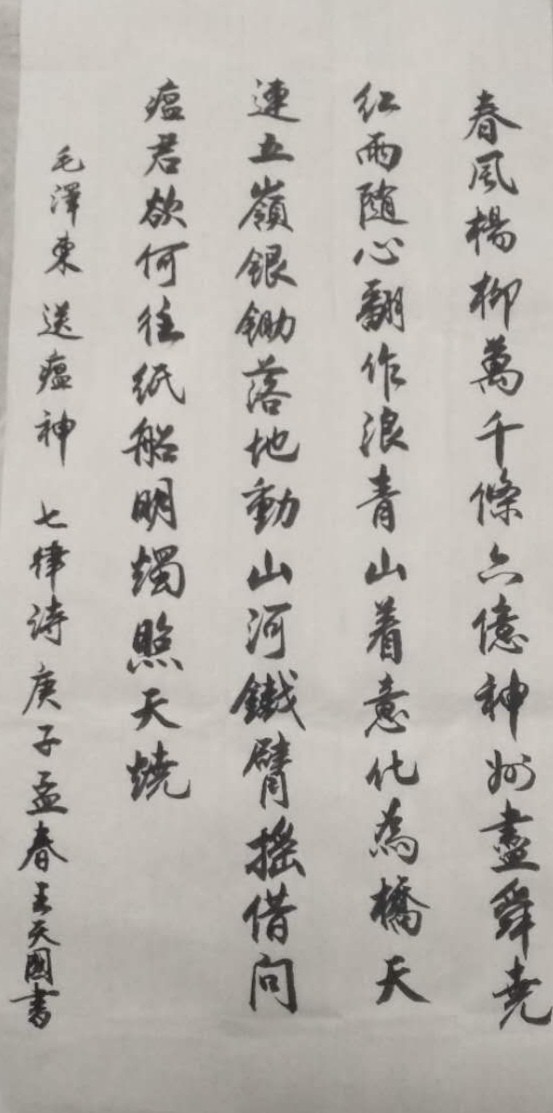 春風楊柳萬千條六億神州盡舜堯
红雨随心翻作浪青山着意化為橋天
連五嶺銀鋤落地動山河鐵臂搖借问
瘟君欲何往紙船明燭照天燒
毛澤東 送瘟神 七律诗 庚子孟春王天國書